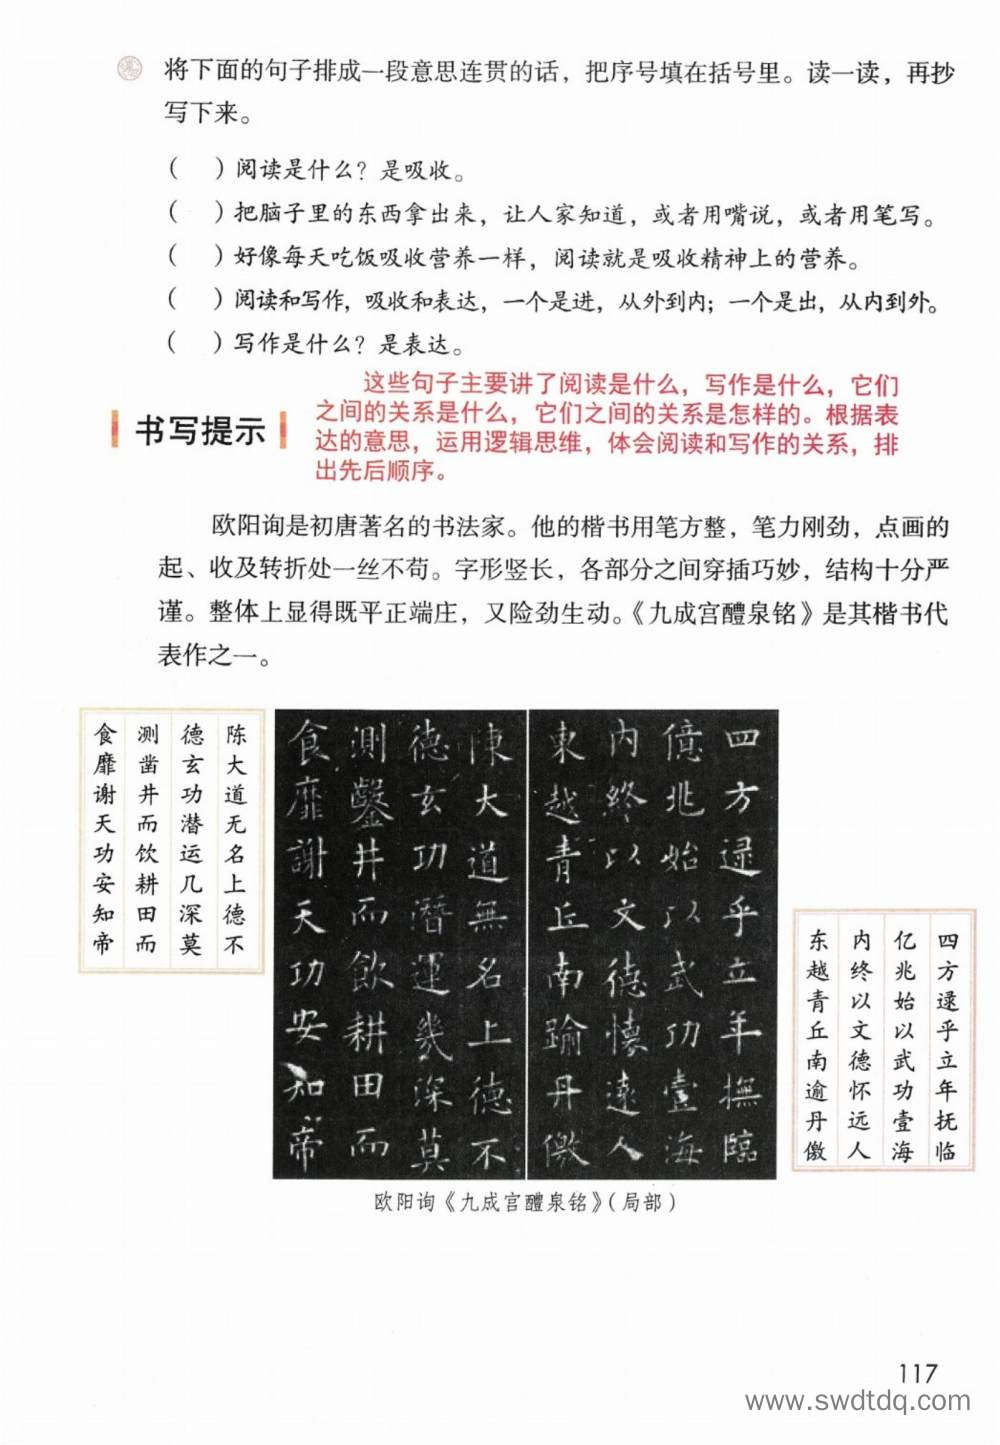 将下面的句子排成一段意思连贯的话，把序号填在括号里。读一读，再抄
写下来。
（　）阅读是什么？是吸收。
（　）把脑子里的东西拿出来，让人家知道，或者用嘴说，或者用笔写。
（　）好像每天吃饭吸收营养一样，阅读就是吸收精神上的营养。
（　）阅读和写作，吸收和表达，一个是进，从外到内；一个是出，从内到外。
（　）写作是什么？是表达。
这些句子主要讲了阅读是什么，写作是什么，它们
之间的关系是什么，它们之间的关系是怎样的。根据表
达的意思，运用逻辑思维，体会阅读和写作的关系，排
出先后顺序。
书写提示
欧阳询是初唐著名的书法家。他的楷书用笔方整，笔力刚劲，点画的
起、收及转折处一丝不苟。字形竖长，各部分之间穿插巧妙，结构十分严
谨。整体上显得既平正端庄，又险劲生动。《九成宫醴泉铭》是其楷书代
表作之一。
四方逯乎立年抚临
亿兆始以武功壹海
内终以文德怀远人
东越青丘南逾丹儌
陈大道无名上德不
德玄功潜运几深莫
测凿井而饮耕田而
食靡谢天功安知帝
四方逯乎立年撫臨
億兆始以武功壹海
内終以文德懷遠人
東越青丘南踰丹儌
陳大道無名上德不
德玄功潛運幾深莫
測鑿井而飲耕田而
食靡謝天功安知帝
欧阳询《九成宫醴泉铭》（局部）
117
www.swdtdq.com